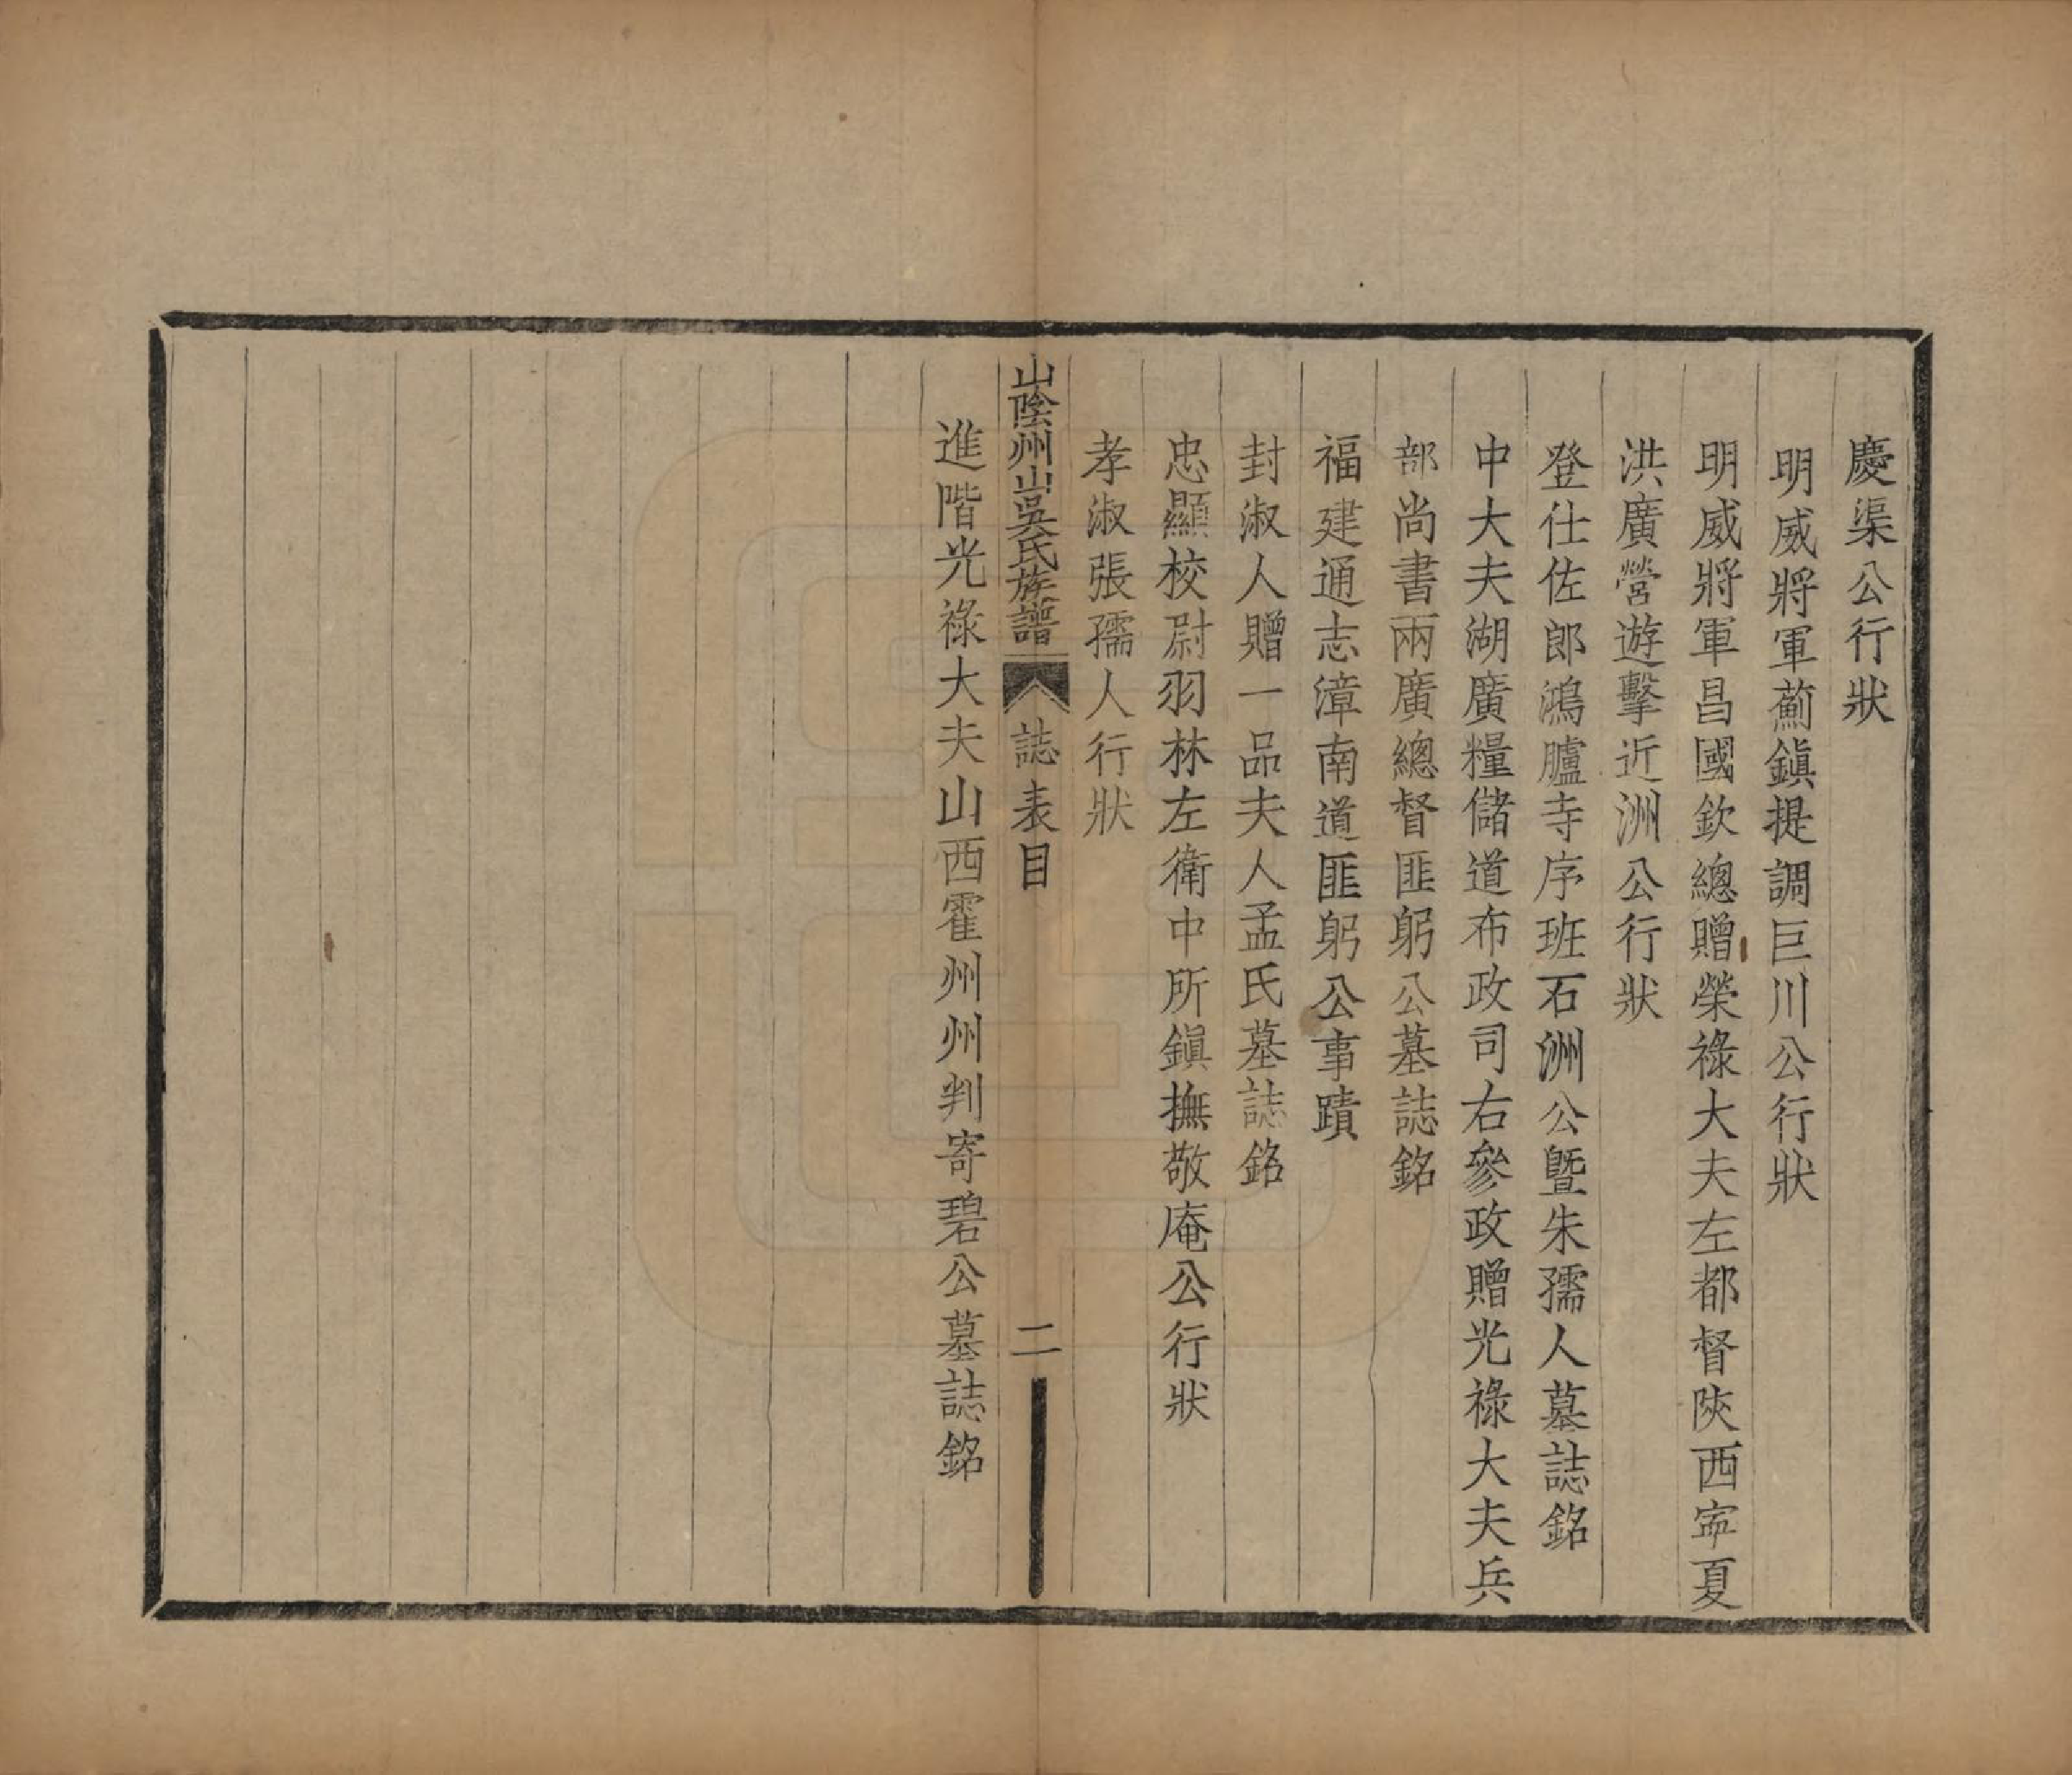 慶渠公行狀
明威將軍薊鎮提調巨川公行狀
明威將軍昌國欽總贈榮祿大夫左都督陝西寍夏
洪廣營遊擊近洲公行狀
登仕佐郎鴻臚寺序班石洲公暨朱孺人墓誌銘
中大夫湖廣糧儲道布政司右參政贈光祿大夫兵
部尚書兩廣總督匪躬公墓誌銘
福建通志漳南道匪躬公事蹟
封淑人贈一品夫人孟氏墓誌銘
忠顯校尉羽林左衛中所鎮撫敬庵公行狀
孝淑張孺人行狀
山陰州山吳氏族譜 誌表目 二
進階光祿大夫山西霍州州判寄碧公墓誌銘